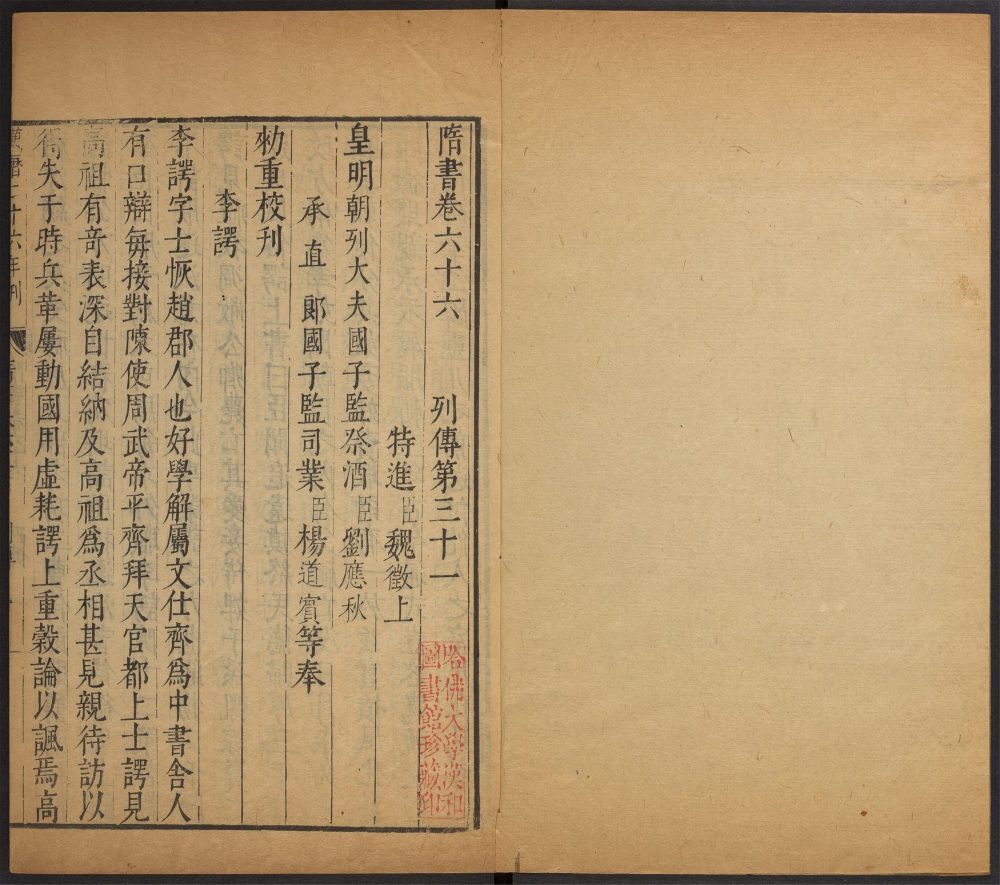 隋書卷六十六　　列傳第三十一
特進臣魏徵上
皇明朝列大夫國子監祭酒臣劉應秋
承直郎國子監司業臣楊道賓等奉
勑重校刊
李諤
李諤字士恢趙郡人也好學解屬文仕齊爲中書舍人
有口辯每接對陳使周武帝平齊拜天官都上士諤見
高祖有竒表深自結納及高祖爲丞相甚見親待訪以
得失于時兵革屢動國用虛耗諤上重穀論以諷焉高
二十六年刊
哈佛大學漢和
圖書館珍藏印